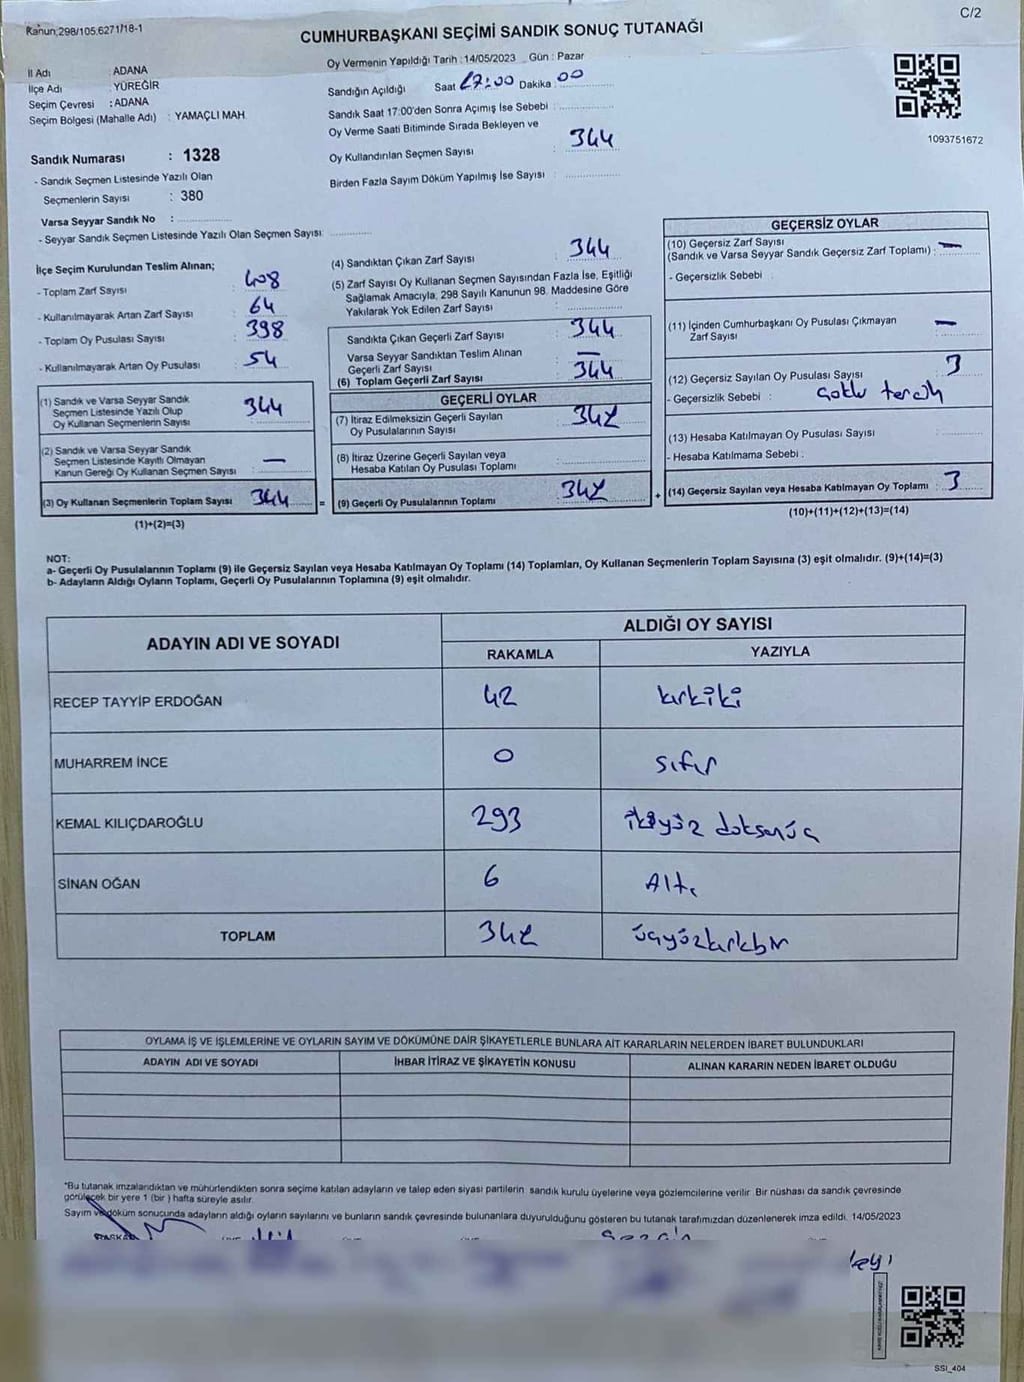 Kanun;298/105.6271/18-1
C/2
CUMHURBAŞKANI SEÇİMİ SANDIK SONUÇ TUTANAĞI
İl Adı : ADANA
İlçe Adı : YÜREĞİR
Seçim Çevresi : ADANA
Seçim Bölgesi (Mahalle Adı) : YAMAÇLI MAH
Sandık Numarası : 1328
- Sandık Seçmen Listesinde Yazılı Olan
Seçmenlerin Sayısı : 380
Varsa Seyyar Sandık No :
- Seyyar Sandık Seçmen Listesinde Yazılı Olan Seçmen Sayısı:
Oy Vermenin Yapıldığı Tarih :14/05/2023 Gün : Pazar
Sandığın Açıldığı Saat 17:00 Dakika 00
Sandık Saat 17:00'den Sonra Açımış İse Sebebi :
Oy Verme Saati Bitiminde Sırada Bekleyen ve
Oy Kullandırılan Seçmen Sayısı : 344
Birden Fazla Sayım Döküm Yapılmış İse Sayısı :
1093751672
İlçe Seçim Kurulundan Teslim Alınan;
- Toplam Zarf Sayısı : 408
- Kullanılmayarak Artan Zarf Sayısı : 64
- Toplam Oy Pusulası Sayısı : 398
- Kullanılmayarak Artan Oy Pusulası : 54
(1) Sandık ve Varsa Seyyar Sandık
Seçmen Listesinde Yazılı Olup
Oy Kullanan Seçmenlerin Sayısı : 344
(2) Sandık ve Varsa Seyyar Sandık
Seçmen Listesinde Kayıtlı Olmayan
Kanun Gereği Oy Kullanan Seçmen Sayısı : —
(3) Oy Kullanan Seçmenlerin Toplam Sayısı : 344
(1)+(2)=(3)
=
(4) Sandıktan Çıkan Zarf Sayısı : 344
(5) Zarf Sayısı Oy Kullanan Seçmen Sayısından Fazla İse, Eşitliği
Sağlamak Amacıyla, 298 Sayılı Kanunun 98. Maddesine Göre
Yakılarak Yok Edilen Zarf Sayısı :
Sandıkta Çıkan Geçerli Zarf Sayısı : 344
Varsa Seyyar Sandıktan Teslim Alınan
Geçerli Zarf Sayısı : —
(6) Toplam Geçerli Zarf Sayısı : 344
GEÇERLİ OYLAR
(7) İtiraz Edilmeksizin Geçerli Sayılan
Oy Pusulalarının Sayısı : 342
(8) İtiraz Üzerine Geçerli Sayılan veya
Hesaba Katılan Oy Pusulası Toplamı :
(9) Geçerli Oy Pusulalarının Toplamı : 342
+
GEÇERSİZ OYLAR
(10) Geçersiz Zarf Sayısı
(Sandık ve Varsa Seyyar Sandık Geçersiz Zarf Toplamı) : —
- Geçersizlik Sebebi :
(11) İçinden Cumhurbaşkanı Oy Pusulası Çıkmayan
Zarf Sayısı : —
(12) Geçersiz Sayılan Oy Pusulası Sayısı : 3
- Geçersizlik Sebebi : çoklu tercih
(13) Hesaba Katılmayan Oy Pusulası Sayısı :
- Hesaba Katılmama Sebebi :
(14) Geçersiz Sayılan veya Hesaba Katılmayan Oy Toplamı : 3
(10)+(11)+(12)+(13)=(14)
NOT:
a- Geçerli Oy Pusulalarının Toplamı (9) ile Geçersiz Sayılan veya Hesaba Katılmayan Oy Toplamı (14) Toplamları, Oy Kullanan Seçmenlerin Toplam Sayısına (3) eşit olmalıdır. (9)+(14)=(3)
b- Adayların Aldığı Oyların Toplamı, Geçerli Oy Pusulalarının Toplamına (9) eşit olmalıdır.
ADAYIN ADI VE SOYADI
ALDIĞI OY SAYISI
RAKAMLA YAZIYLA
RECEP TAYYİP ERDOĞAN 42 kırkiki
MUHARREM İNCE 0 sıfır
KEMAL KILIÇDAROĞLU 293 ikiyüz doksanüç
SİNAN OĞAN 6 Altı
TOPLAM 342 üçyüzkırkbir
OYLAMA İŞ VE İŞLEMLERİNE VE OYLARIN SAYIM VE DÖKÜMÜNE DAİR ŞİKAYETLERLE BUNLARA AİT KARARLARIN NELERDEN İBARET BULUNDUKLARI
ADAYIN ADI VE SOYADI İHBAR İTİRAZ VE ŞİKAYETİN KONUSU ALINAN KARARIN NEDEN İBARET OLDUĞU
*Bu tutanak imzalandıktan ve mühürlendikten sonra seçime katılan adayların ve talep eden siyasi partilerin sandık kurulu üyelerine veya gözlemcilerine verilir. Bir nüshası da sandık çevresinde
görülecek bir yere 1 (bir ) hafta süreyle asılır.
Sayım ve döküm sonucunda adayların aldığı oyların sayılarını ve bunların sandık çevresinde bulunanlara duyurulduğunu gösteren bu tutanak tarafımızdan düzenlenerek imza edildi. 14/05/2023
SSI_404